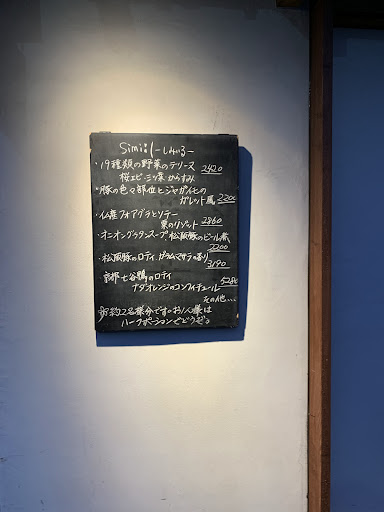 Simiil -しみいる-
・19種類の野菜のテリーヌ 2420
桜エビ・三ツ葉 からすみ
・豚の色々部位とジャガイモの
ガレット風 2200
・仏産フォアグラとソテー
栗のリゾット 2860
・オニオングラタンスープ 松阪豚のビール煮
2200
・松阪豚のロティ ガラムマサラの香り
3190
京都七谷鴨のロティ
ナダオレンジのコンフィチュール 5280
その他...
約2名様分です。お1人様は
ハーフポーションでどうぞ。